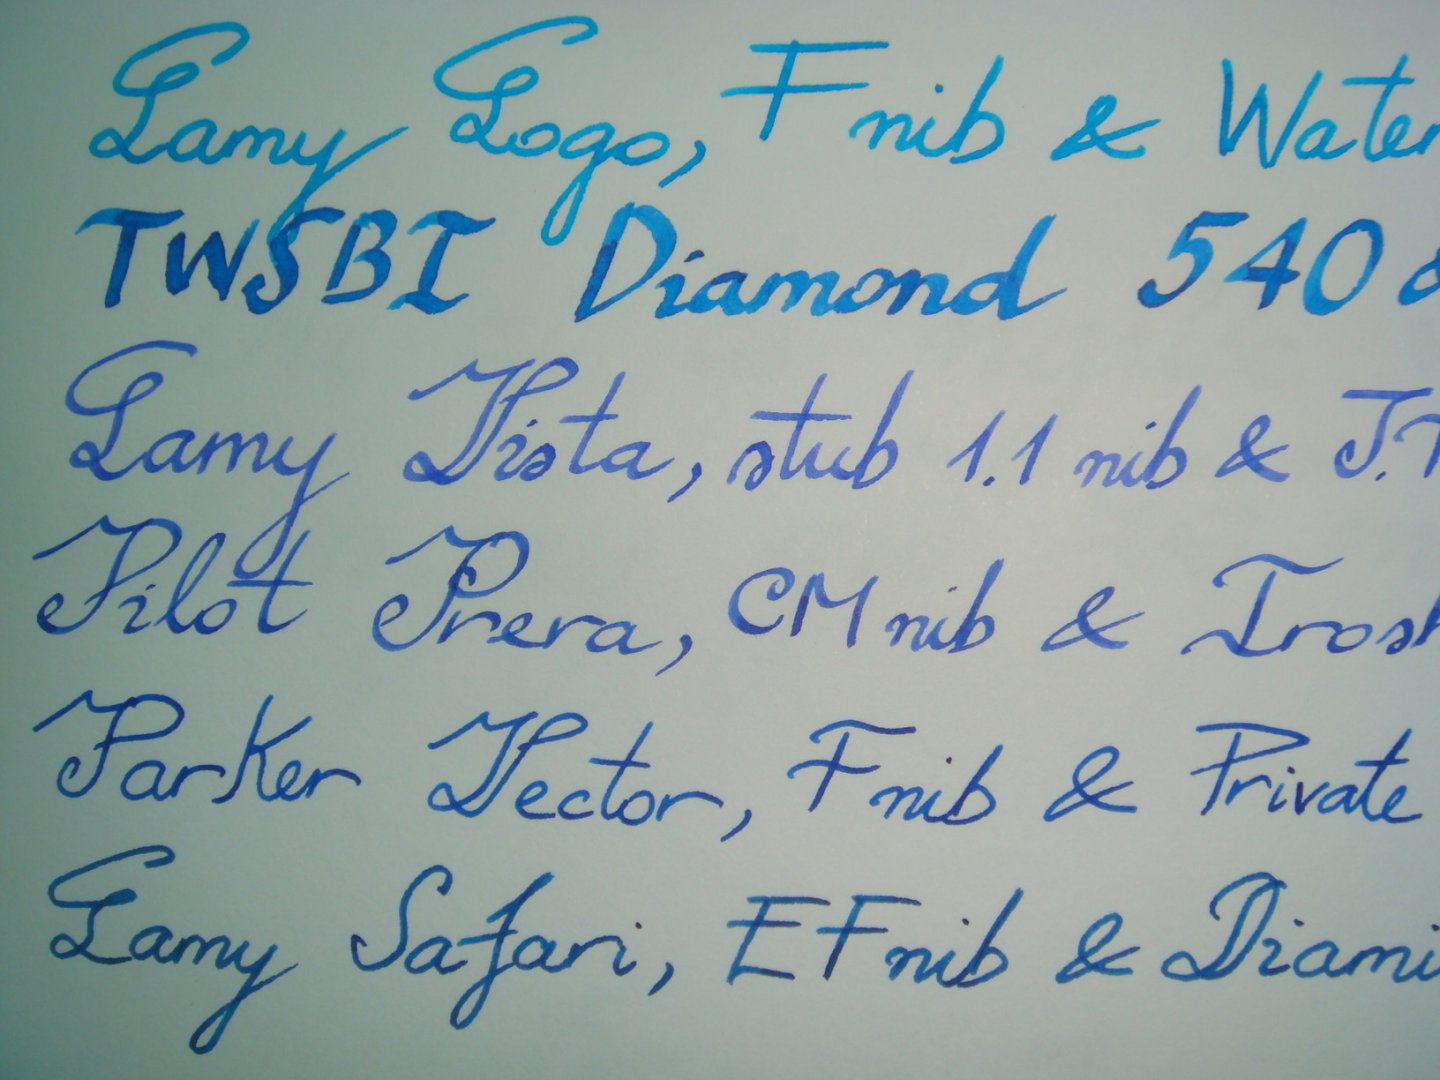 Lamy Logo, F nib & Water
TWSBI Diamond 540 &
Lamy Vista, stub 1.1 nib & J.
Pilot Prera, CM nib & Irosh
Parker Vector, F nib & Private
Lamy Safari, EF nib & Diami